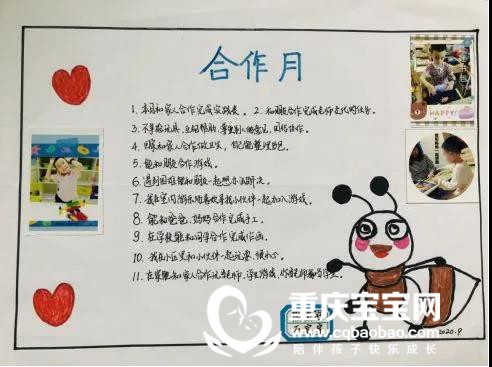 合作月
1、本月和家人合作完成实践表。 2、和朋友合作完成老师交代的任务。
3、不争抢玩具，互相帮助，拿别人的东西，团结协作。
4、回家和家人合作做卫生，自己能整理书包。
5、能和朋友合作游戏。
6、遇到困难能和朋友一起想办法解决。
7、我在室内游乐场喜欢寻找小伙伴一起加入游戏。
8、能和爸爸、妈妈合作完成手工。
9、在学校能和同学合作完成作画。
10、我在小区里和小伙伴一起玩耍，很开心。
11、在家能和家人合作玩老师、学生游戏，
HAPPY!
2020.9
重庆宝宝网
www.cqbaobao.com
陪伴孩子快乐成长